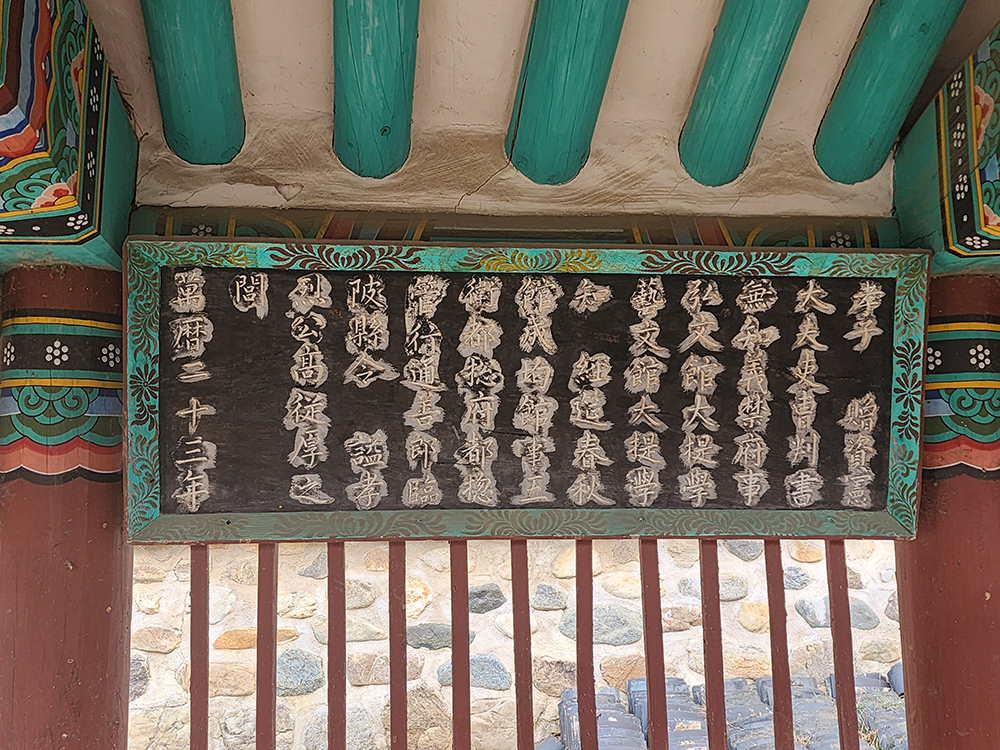 孝子 贈資憲
大夫吏曹判書
兼知義禁府事
弘文館大提學
藝文館大提學
知 經筵春秋
館成均館事五
衛都摠府都摠
管行通善郎臨
陂縣令 諡孝
烈公高從厚之
閭
萬曆二十三年